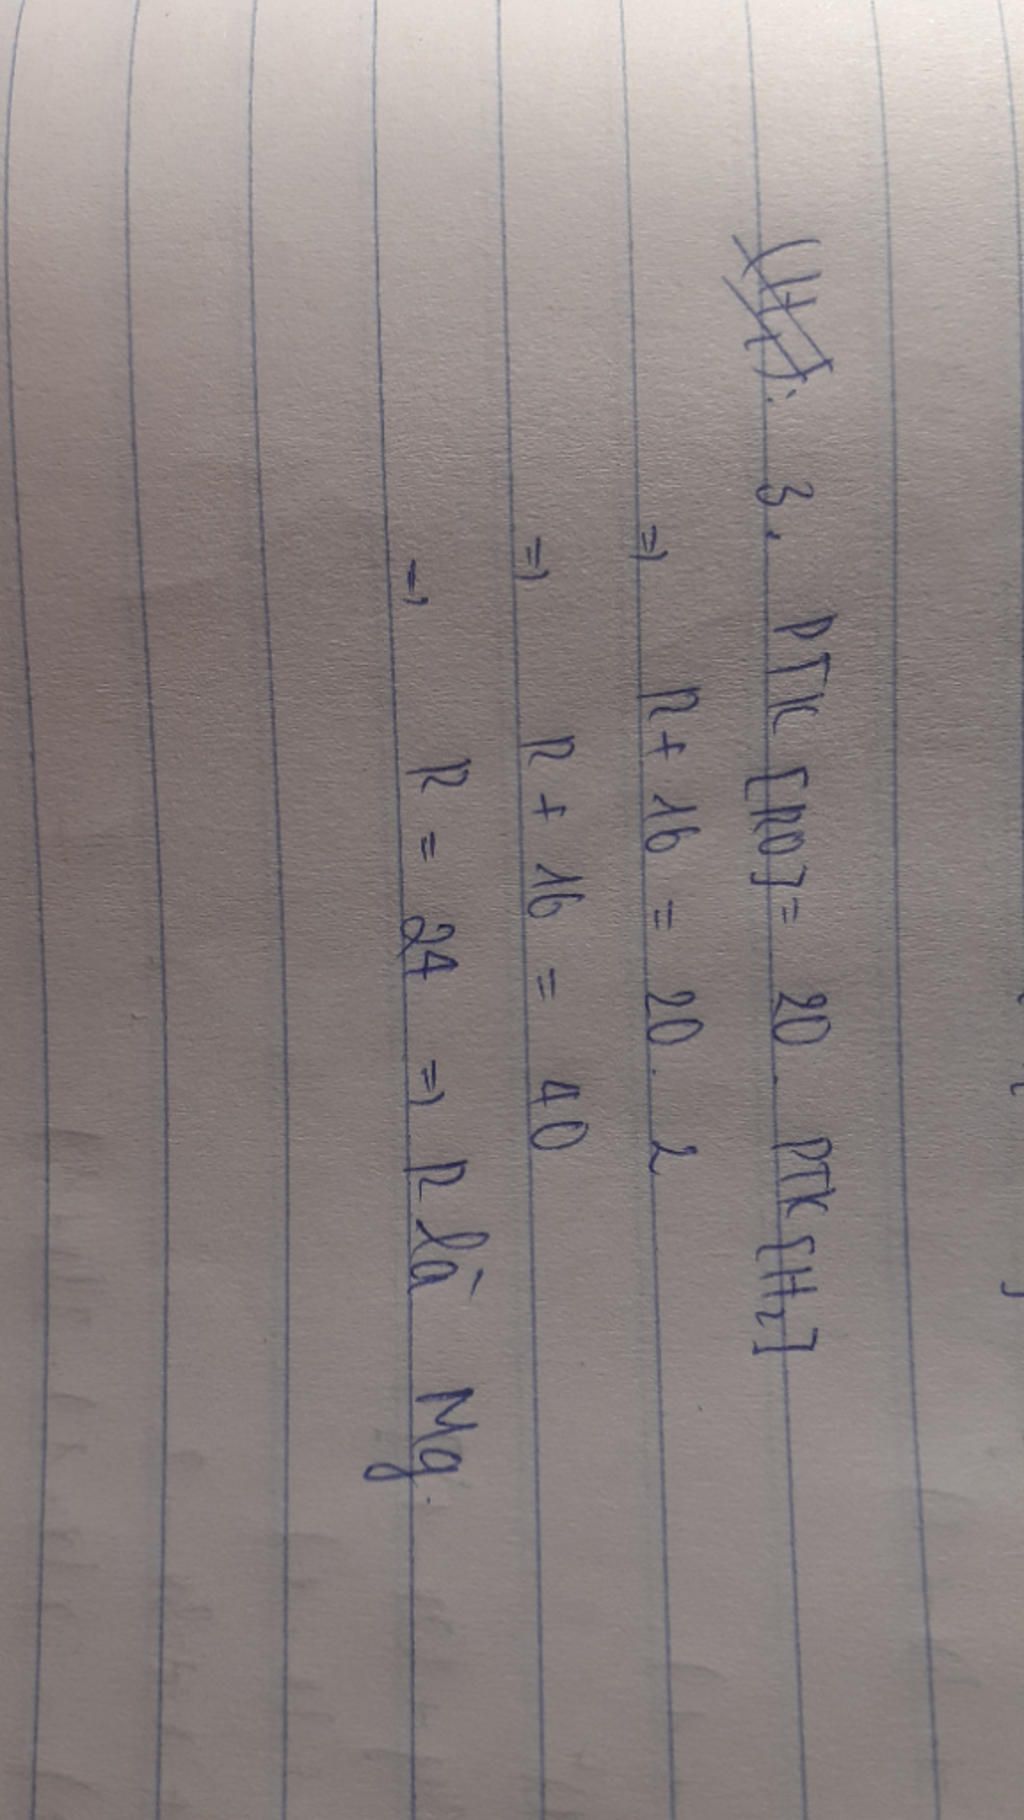 3. PTK [RO] = 20. PTK [H₂]
=> R + 16 = 20. 2
=> R + 16 = 40
=> R = 24 => R là Mg.